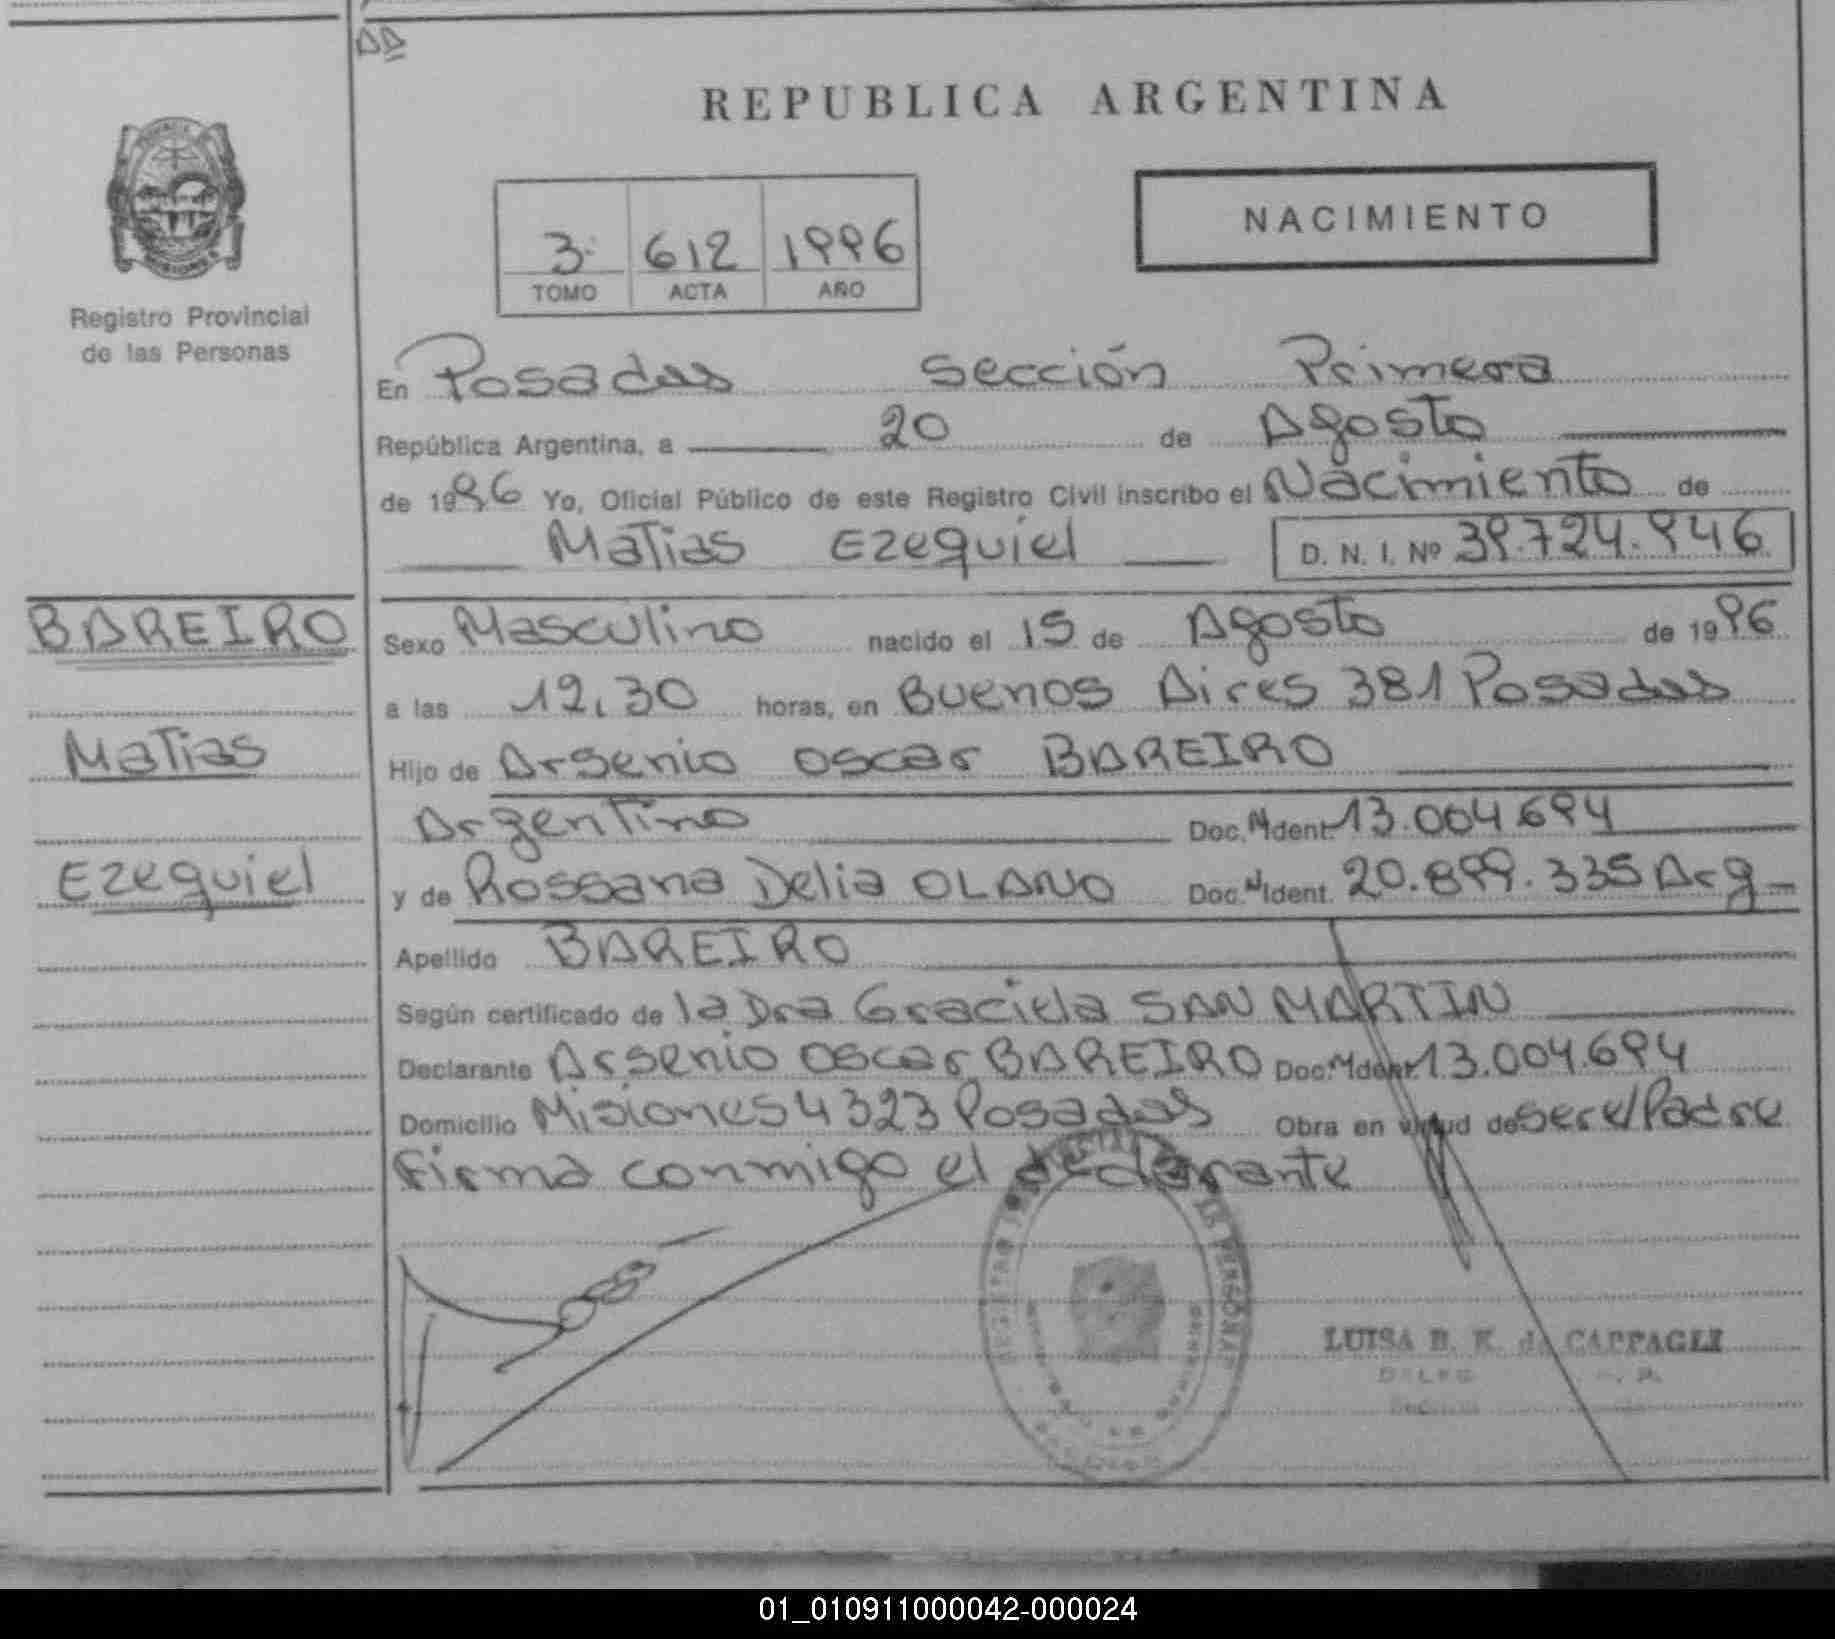 AA
REPUBLICA ARGENTINA
NACIMIENTO
3: 612 1996
TOMO ACTA AÑO
MISIONES
Registro Provincial
de las Personas
En Posadas Sección Primera
República Argentina, a 20 de Agosto
de 1996 Yo, Oficial Público de este Registro Civil inscribo el Nacimiento de
Matias Ezequiel D. N. I. Nº 39.724.946
BAREIRO
Sexo Masculino nacido el 15 de Agosto de 1996
a las 12,30 horas, en Buenos Aires 381 Posadas
Matias
Hijo de Arsenio Oscar BAREIRO
Argentino Doc. N Ident. 13.004.694
Ezequiel
y de Rossana Delia OLANO Doc. N Ident. 20.899.335 Arg
Apellido BAREIRO
Según certificado de la Dra Graciela SAN MARTIN
Declarante Arsenio Oscar BAREIRO Doc. N Ident. 13.004.694
Domicilio Misiones 4323 Posadas Obra en virtud de ser el Padre
Firma conmigo el declarante
LUISA B. K. de CAPPAGLI
01_010911000042-000024